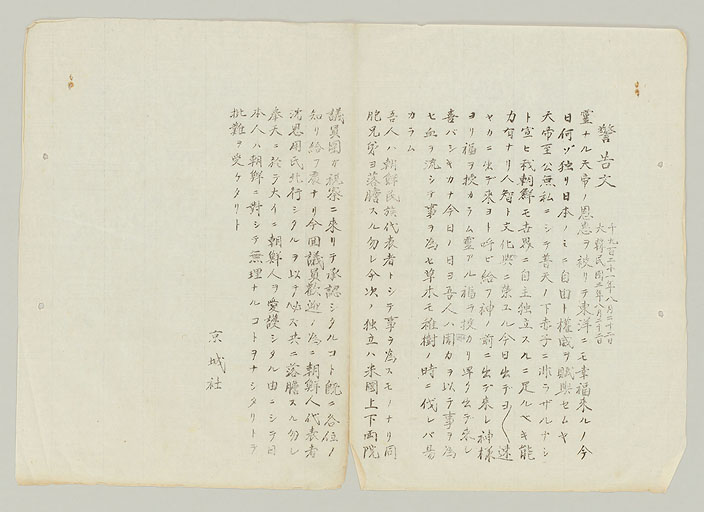 警告文
千九百二十一年八月二十二日
大韓民国二年八月二十二日
霊ナル天帝ノ恩恵ヲ被リテ東洋ニモ幸福来ルノ今
日何ゾ独リ日本ノミニ自由ト権威ヲ賦与セムヤ
天帝至公無私ニシテ普天ノ下赤子ニ非ラザルナシ
ト宣ヒ我朝鮮モ世界ニ自主独立スルニ足ルベキ能
力有ナリ人智ト文化共ニ栄エル今日出デヨ〱速
ヤカニ出デ来ヨト呼ビ給フ神ノ前ニ出デ来レ神様
ヨリ福ヲ授カラム霊アル福ヲ授カリ早ク出デ来レ
喜バシキカナ今日ノ日ヨ吾人ハ開力ヲ以テ事ヲ為
セ血ヲ流シテ事ヲ為セ草木モ稚樹ノ時ニ伐レバ易
カラム
吾人ハ朝鮮民族代表者トシテ事ヲ為スモノナリ同
胞兄弟ヨ落膽スル勿レ今次ノ独立ハ米国上下両院
議員團ガ視察ニ来リテ承認シタルコト既ニ各位ノ
知リ給フ處ナリ今回議員歓迎ノ為ニ朝鮮人代表者
沈思用氏北行シタルヲ以テ必ズ共ニ落膽スル勿レ
奉天ニ於テ大イニ朝鮮人ヲ愛護シタル由ニシテ日
本人ハ朝鮮ニ對シテ無理ナルコトヲナシタリトテ
批難ヲ受ケタリト
京城社